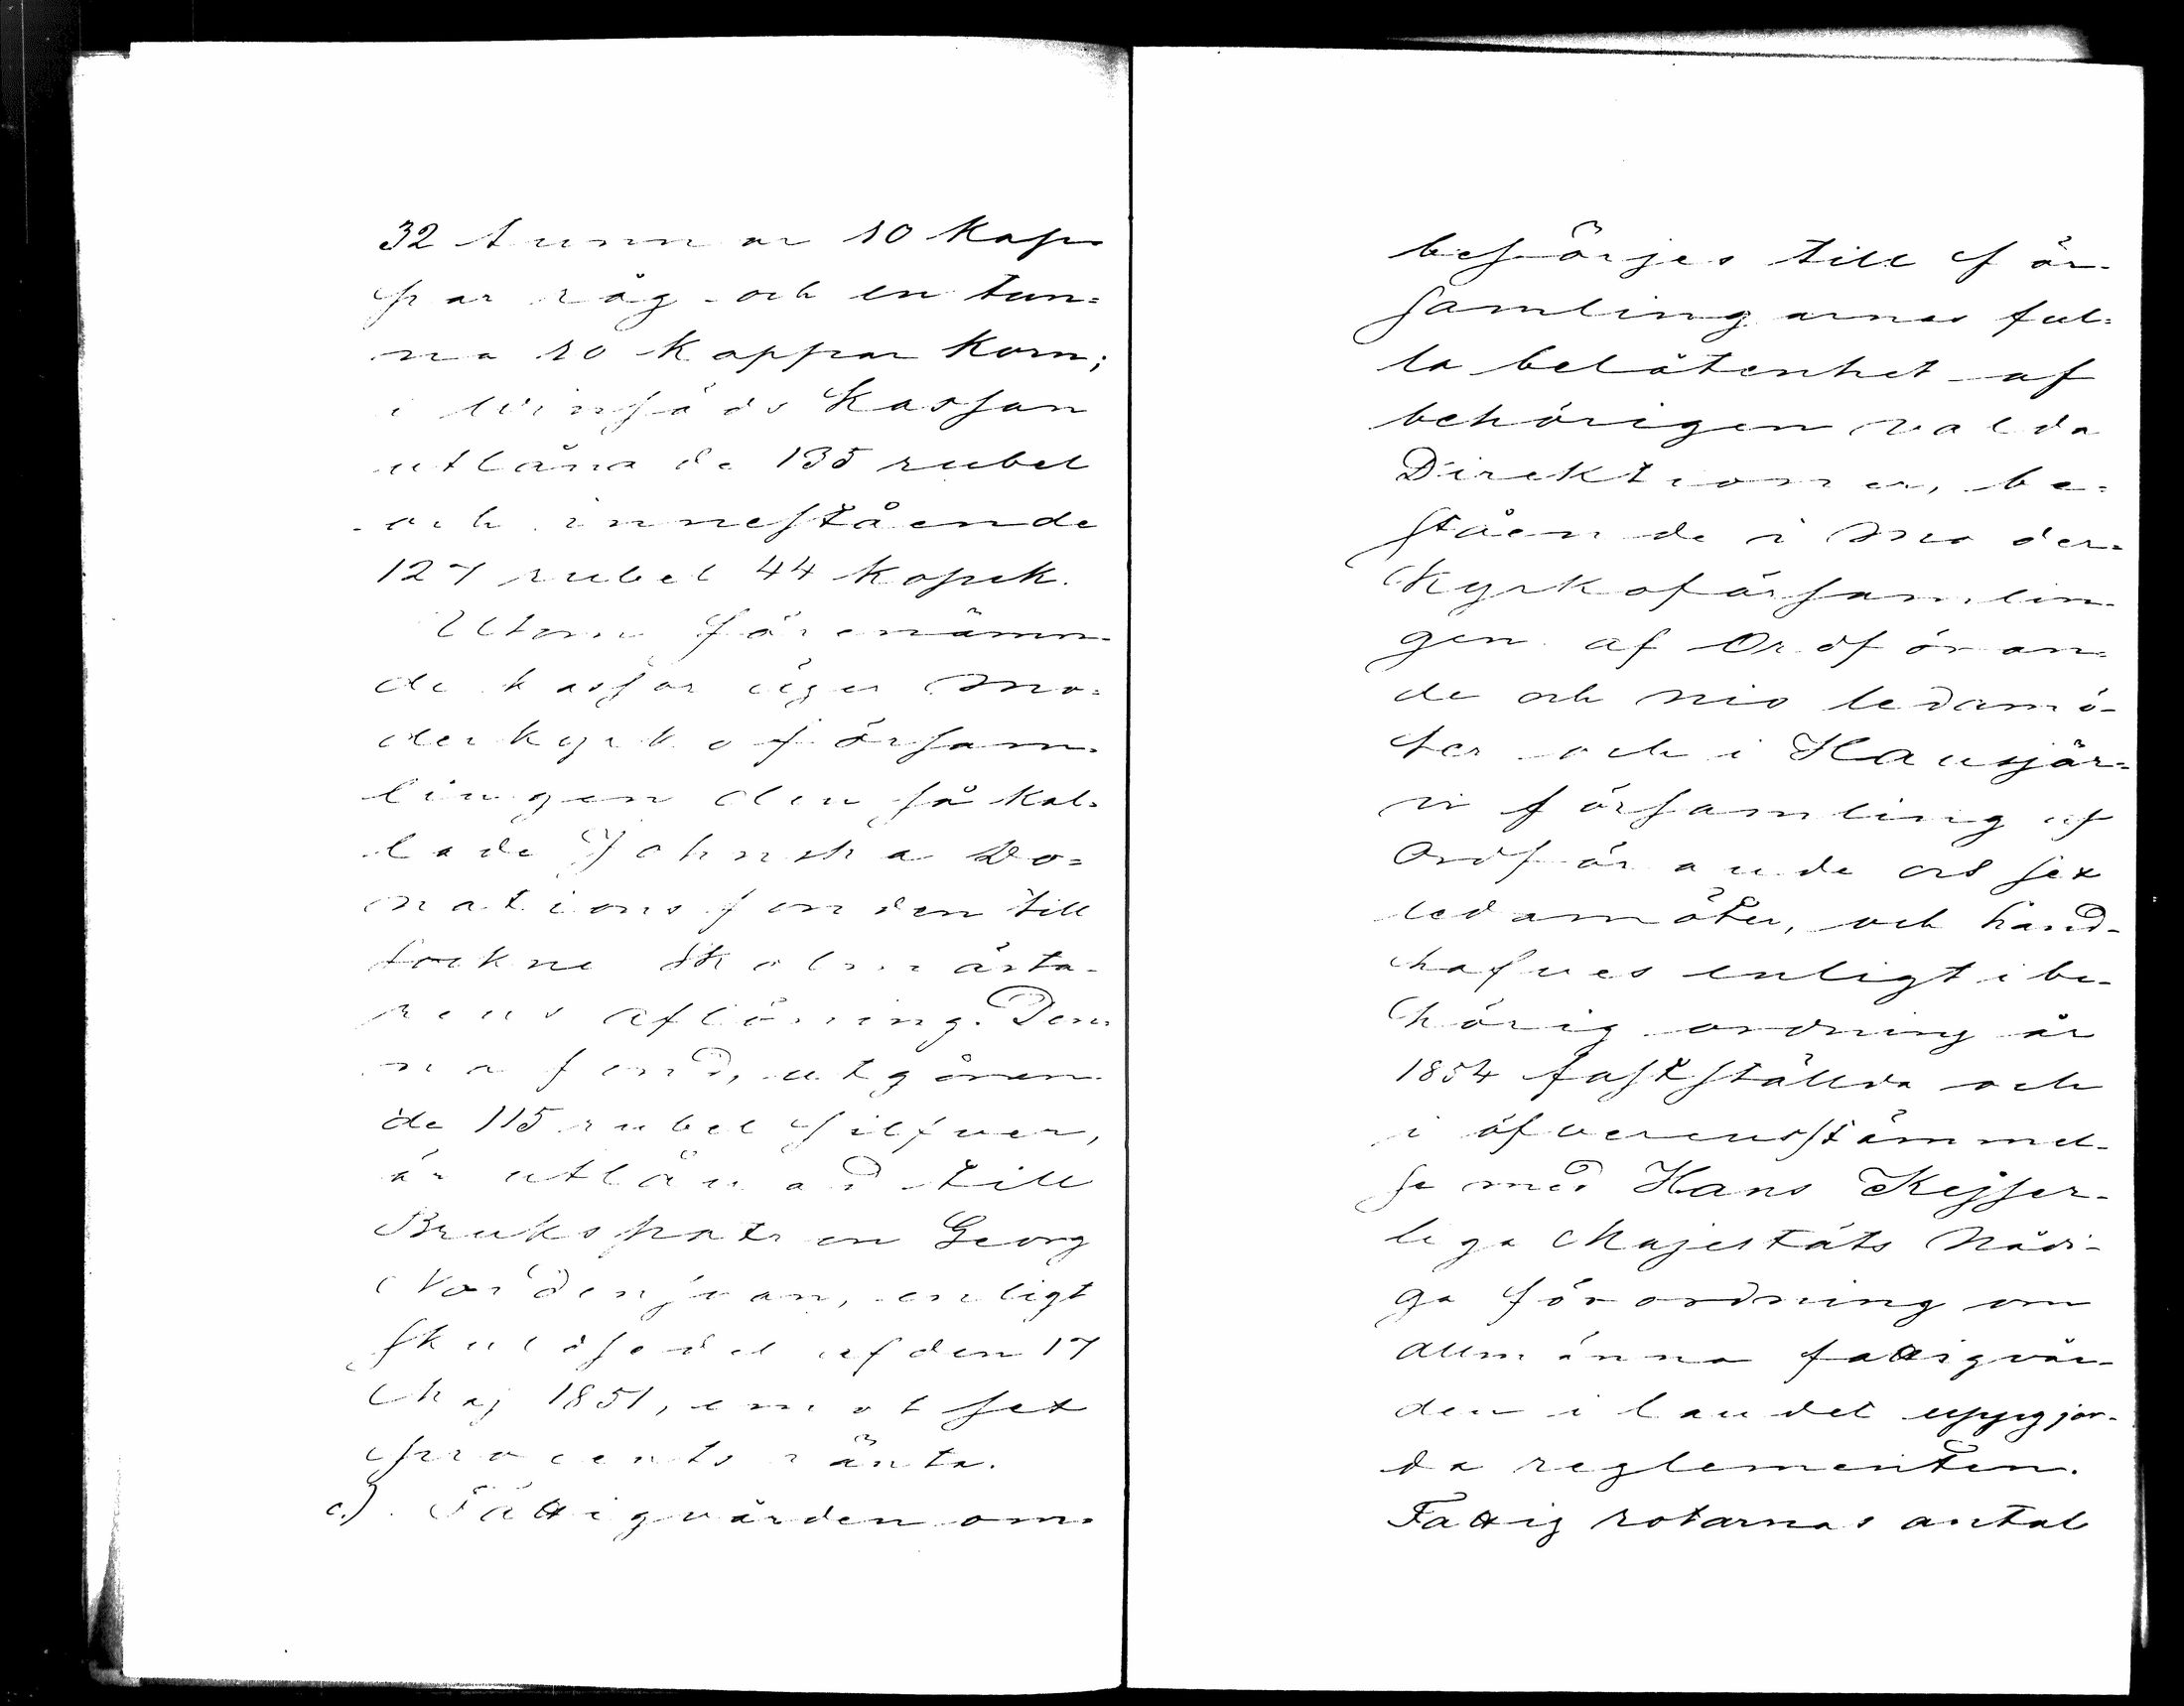 32 tunnor 10 kap-
par råg och en tun=
na 10 kappar korn;
i Vinsäds Kassan
utlånade 135 rubel
och innestående
127 rubel 44 kopek.
Utom förenämn-
de kassor äger Mo=
derkyrkoförsam-
lingen den så kal-
lade Johnska Do=
nationsfonden till
sockne skolmästa-
rens aflöning. Den-
na fond, utgören-
de 115 rubel silfver,
är utlånad till
Brukspatron Georg
Nordenswan, enligt
skuldsedel af den 17
Maj 1851, emot sex
procents ränta.
c.) Fattigvården om-
besörjes till för-
samlingarnas ful-
la belåtenhet af
behörigen valda
Direktioner, be-
stående i Moder=
kyrkoförsamlin-
gen af Ordföran-
de och nio ledamö-
ter och i Hausjär=
vi församling af
Ordförande och sex
ledamöter, och hand-
hafves enligt i be-
hörig ordning år
1854 fastställda och
i öfverensstämmel-
se med Hans Kejser-
liga Majestäts Nådi-
ga förordning om
allmänna fattigvår-
den i landet uppgjor-
da reglementen.
Fattig rotarnas antal